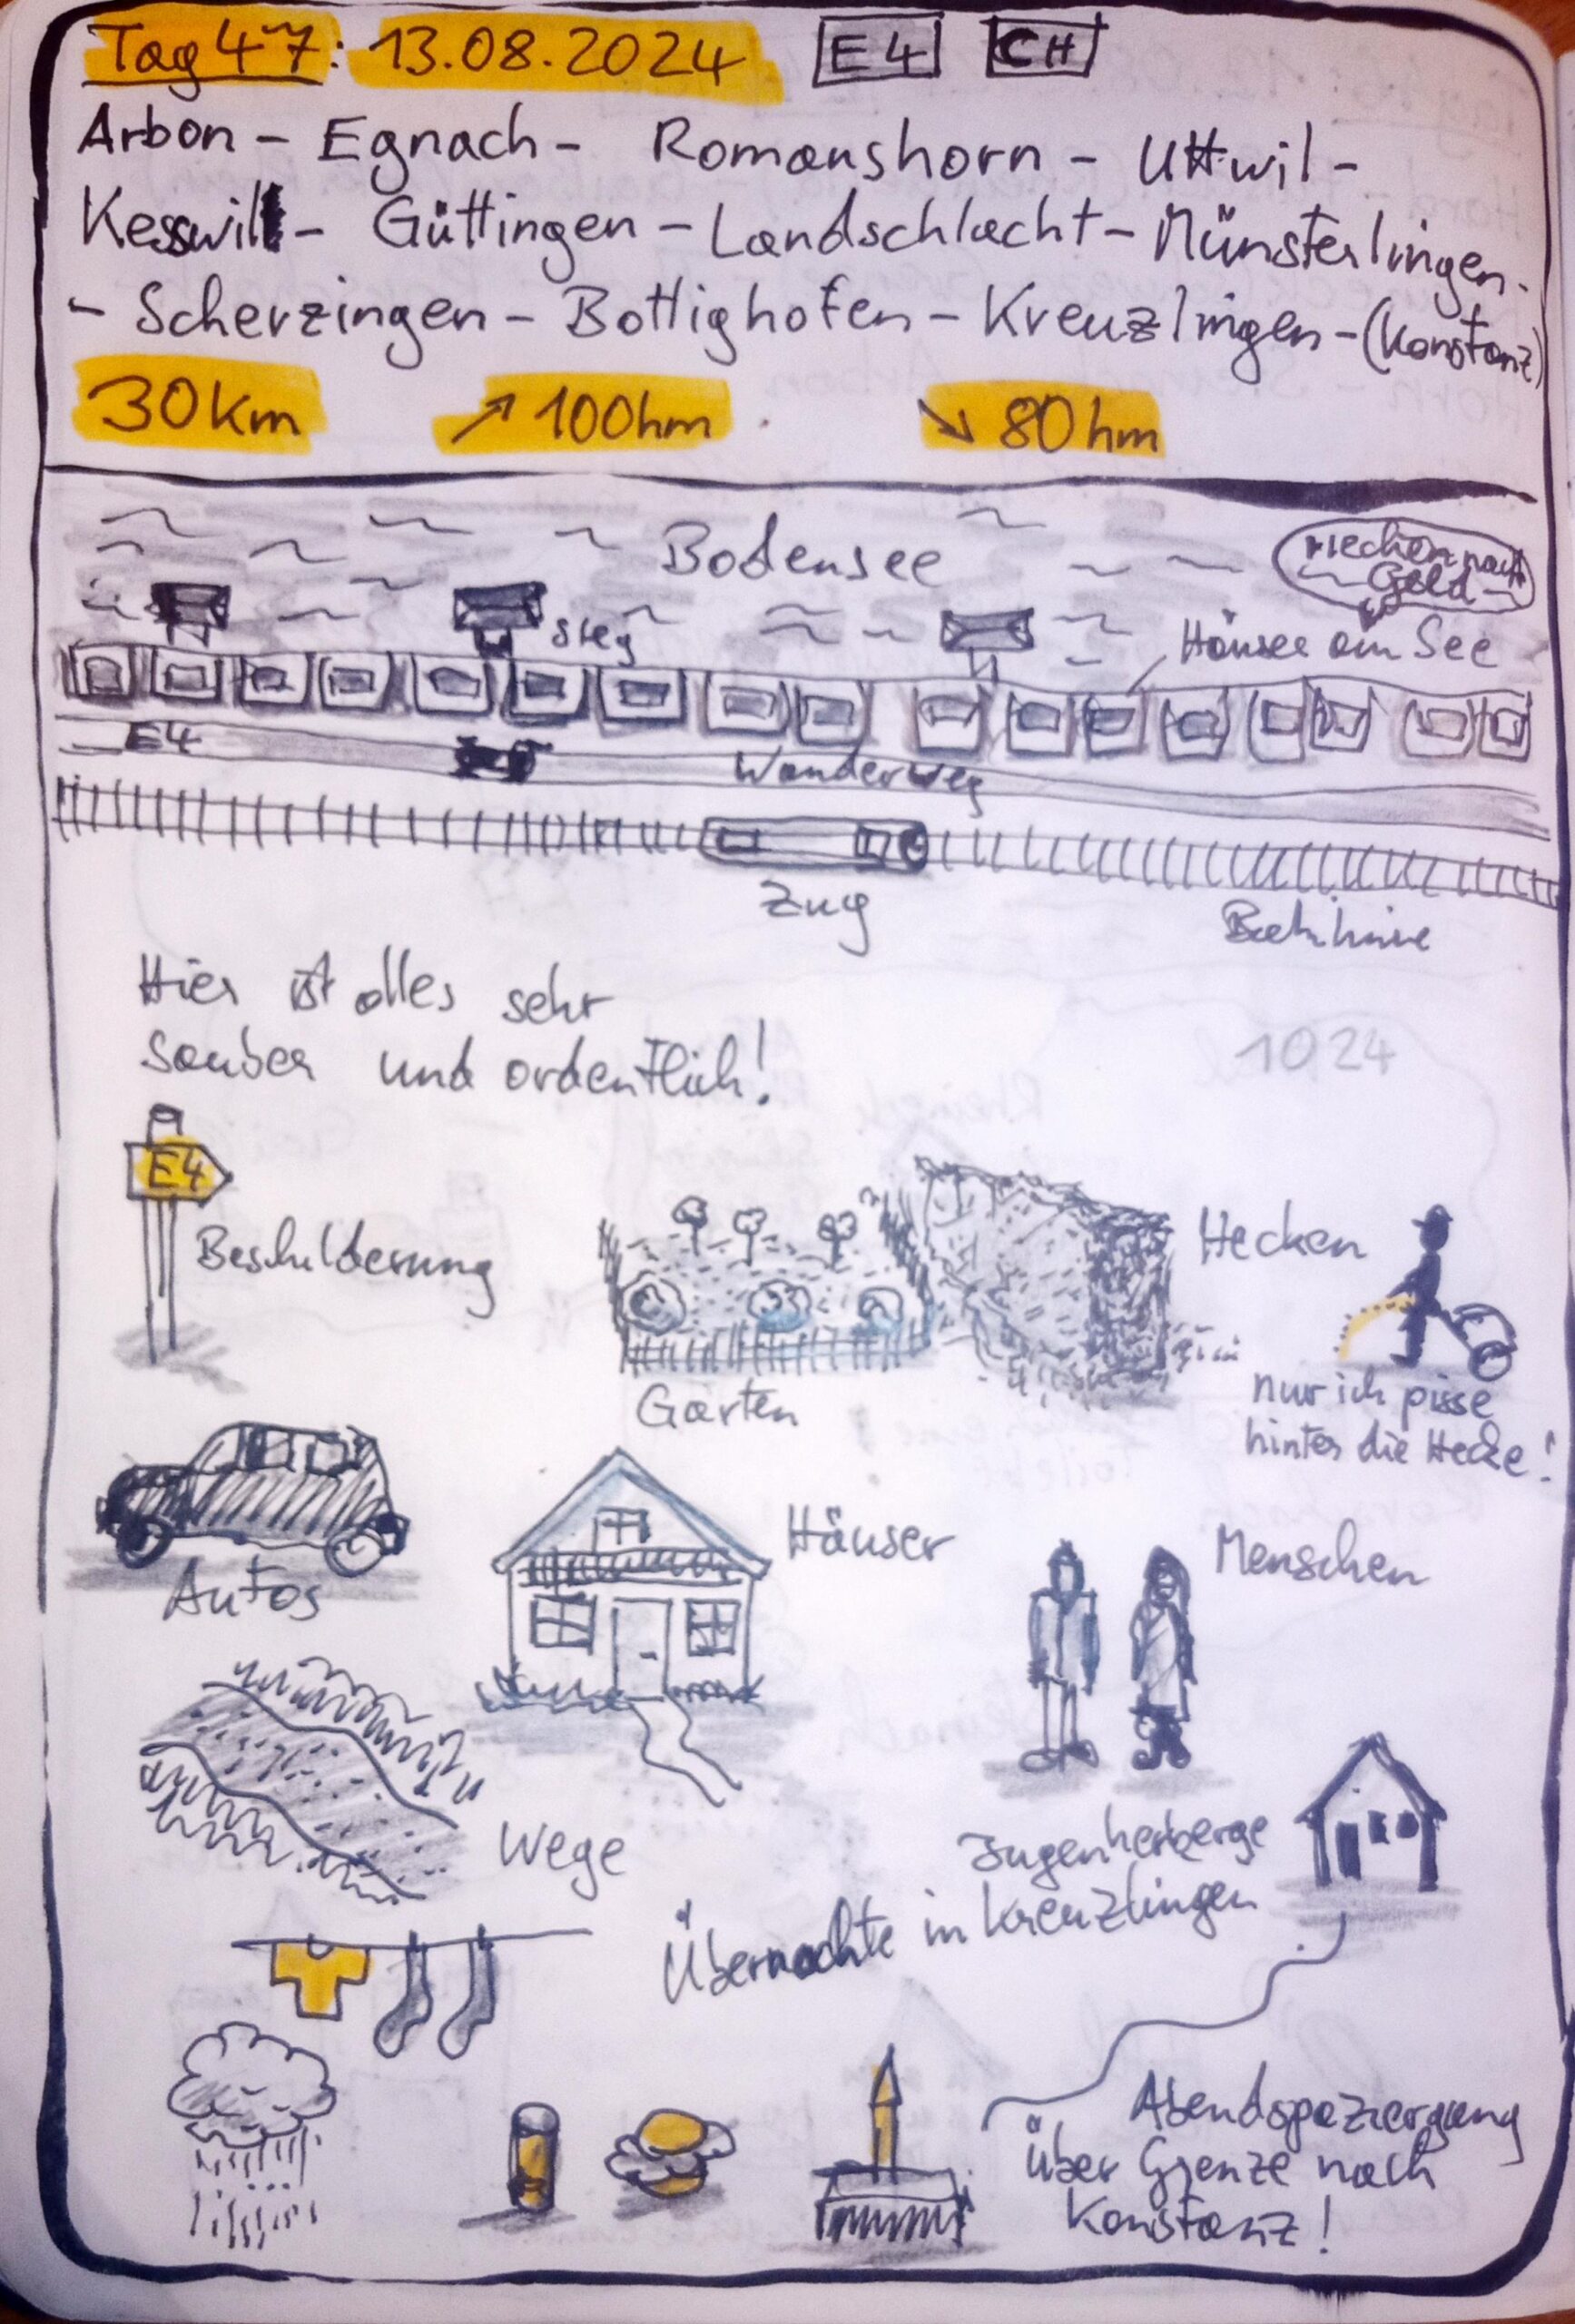 Tag 47: 13.08.2024 E4 CH
Arbon - Egnach - Romanshorn - Uttwil -
Kesswil - Güttingen - Landschlacht - Münsterlingen -
- Scherzingen - Bottighofen - Kreuzlingen - (Konstanz)
30km ↗ 100hm ↘ 80hm
Bodensee
riechen nach
Geld
Steg
Häuser am See
E4
Wanderweg
Zug
Bahnlinie
Hier ist alles sehr
sauber und ordentlich!
1024
E4
Beschilderung
Hecken
Gärten
nur ich pisse
hinter die Hecke!
Autos
Häuser
Menschen
Wege
Jugenherberge
Übernachte in Kreuzlingen
Abendspaziergang
über Grenze nach
Konstanz!